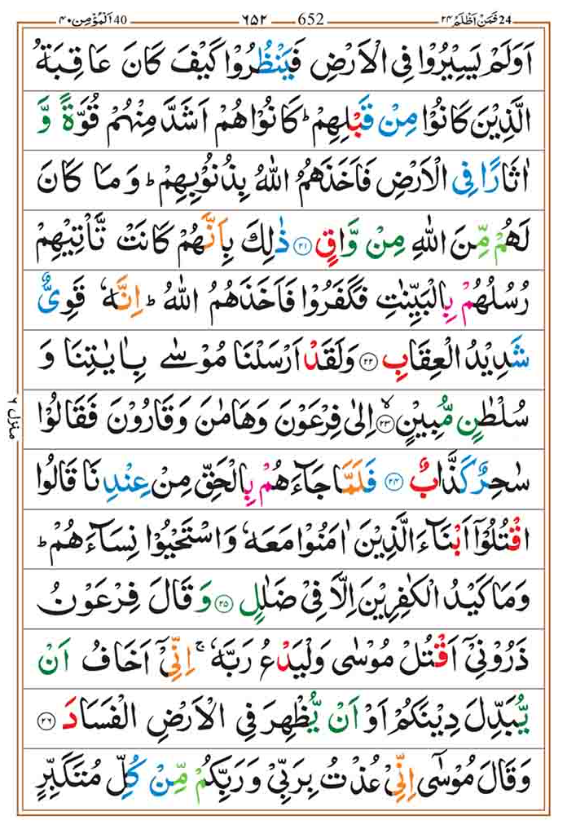 اَلْمُؤْمِن ٤٠ 40 ٦٥٢ 652 فَمَنْ اَظْلَمُ ٢٤ 24
اَوَلَمْ يَسِيْرُوْا فِى الْاَرْضِ فَيَنْظُرُوْا كَيْفَ كَانَ عَاقِبَةُ
الَّذِيْنَ كَانُوْا مِنْ قَبْلِهِمْ ؕ كَانُوْا هُمْ اَشَدَّ مِنْهُمْ قُوَّةً وَّ
اٰثَارًا فِى الْاَرْضِ فَاَخَذَهُمُ اللّٰهُ بِذُنُوْبِهِمْ ؕ وَمَا كَانَ
لَهُمْ مِّنَ اللّٰهِ مِنْ وَّاقٍ ۝٢١ ذٰلِكَ بِاَنَّهُمْ كَانَتْ تَّاْتِيْهِمْ
رُسُلُهُمْ بِالْبَيِّنٰتِ فَكَفَرُوْا فَاَخَذَهُمُ اللّٰهُ ؕ اِنَّهٗ قَوِىٌّ
شَدِيْدُ الْعِقَابِ ۝٢٢ وَلَقَدْ اَرْسَلْنَا مُوْسٰى بِاٰيٰتِنَا وَ
سُلْطٰنٍ مُّبِيْنٍ ۝٢٣ۙ اِلٰى فِرْعَوْنَ وَهَامٰنَ وَقَارُوْنَ فَقَالُوْا
سٰحِرٌ كَذَّابٌ ۝٢٤ فَلَمَّا جَآءَهُمْ بِالْحَقِّ مِنْ عِنْدِنَا قَالُوا
اقْتُلُوْۤا اَبْنَآءَ الَّذِيْنَ اٰمَنُوْا مَعَهٗ وَاسْتَحْيُوْا نِسَآءَهُمْ ؕ
وَمَا كَيْدُ الْكٰفِرِيْنَ اِلَّا فِىْ ضَلٰلٍ ۝٢٥ وَقَالَ فِرْعَوْنُ
ذَرُوْنِىْۤ اَقْتُلْ مُوْسٰى وَلْيَدْعُ رَبَّهٗ ۚ اِنِّىْۤ اَخَافُ اَنْ
يُّبَدِّلَ دِيْنَكُمْ اَوْ اَنْ يُّظْهِرَ فِى الْاَرْضِ الْفَسَادَ ۝٢٦
وَقَالَ مُوْسٰۤى اِنِّىْ عُذْتُ بِرَبِّىْ وَرَبِّكُمْ مِّنْ كُلِّ مُتَكَبِّرٍ
منزل ٦